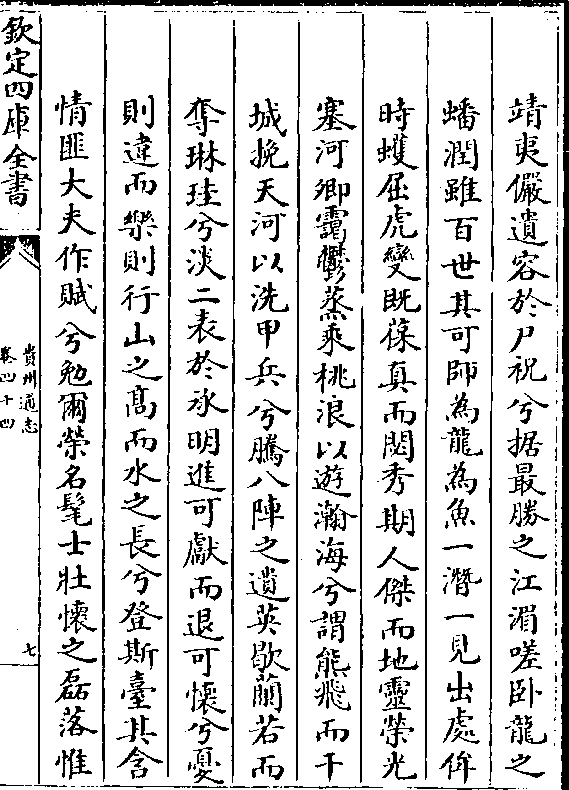 靖夷儼遺容於尸祝兮据最勝之江湄嗟卧龍之
蟠潤雖百世其可師為龍為魚一潛一見出處侔
時蠖屈虎變既葆真而閟秀期人傑而地靈榮光
塞河卿靄鬱蒸乘桃浪以遊瀚海兮謂熊飛而干
城挽天河以洗甲兵兮騰八陣之遺英歇蘭若而
奪琳珪兮淡二表於永明進可獻而退可懷兮憂
則違而樂則行山之髙而水之長兮登斯臺其含
情匪大夫作賦兮勉爾榮名髦士壯懷之磊落惟
欽定四庫全書
貴州通志
卷四十四
七